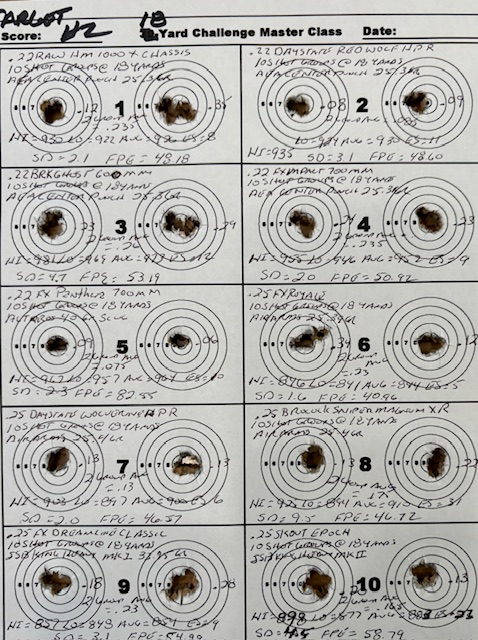 TARGET #2
18
Score: Yard Challenge Master Class Date:
.22 RAW HM 1000 X CHASSIS
10 SHOT GROUPS @ 18 YARDS
AEA CENTER PUNCH 25.3 GR
.12 1 .35
2 GROUP AVG
= .235
HI = 930 LO = 922 AVG = 926 ES = 8
SD = 2.1 FPE = 48.18
.22 DAYSTATE REDWOLF HPR
10 SHOT GROUPS @ 18 YARDS
AEA CENTER PUNCH 25.3 GR
.08 2 .09
2 GROUP AVG
HI = 935 LO = 924 AVG = 930 ES = 11
SD = 3.1 FPE = 48.60
.22 BRK GHOST 600MM
10 SHOT GROUPS @ 18 YARDS
AEA CENTER PUNCH 25.3 GR
.23 3 .29
2 GROUP AVG
= .26
HI = 981 LO = 969 AVG = 973 ES = 12
SD = 4.7 FPE = 53.19
.22 FX IMPACT 700MM
10 SHOT GROUPS @ 18 YARDS
AEA CENTER PUNCH 25.3 GR
.24 4 .23
2 GROUP AVG
= .235
HI = 955 LO = 946 AVG = 952 ES = 9
SD = 2.0 FPE = 50.92
.22 FX Panthera 700MM
10 SHOT GROUPS @ 18 YARDS
ALTAROS 40 GR SLUG
.09 5 .06
2 GROUP AVG
= .075
HI = 967 LO = 957 AVG = 964 ES = 10
SD = 2.3 FPE = 82.55
.25 FX ROYALE
10 SHOT GROUPS @ 18 YARDS
AIRARMS 25.4 GR
.34 6 .12
2 GROUP AVG
= .23
HI = 846 LO = 841 AVG = 844 ES = 5
SD = 1.6 FPE = 40.96
.25 DAYSTATE WOLVERINE HPR
10 SHOT GROUPS @ 18 YARDS
AIRARMS 25.4 GR
.13 7 .13
2 GROUP AVG
= .13
HI = 903 LO = 897 AVG = 900 ES = 6
SD = 2.0 FPE = 46.57
.25 BROCOCK SNIPER MAGNUM XR
10 SHOT GROUPS @ 18 YARDS
AIRARMS 25.4 GR
.13 8 .22
2 GROUP AVG
HI = 925 LO = 894 AVG = 910 ES = 31
SD = 9.5 FPE = 46.72
.25 FX DREAMLINE CLASSIC
10 SHOT GROUPS @ 18 YARDS
JSB KING HEAVY MKI 33.95 GR
.18 9 .28
2 GROUP AVG
= .23
HI = 857 LO = 848 AVG = 854 ES = 9
SD = 3.1 FPE = 54.99
.25 SKOUT EPOCH
10 SHOT GROUPS @ 18 YARDS
JSB KING HEAVY MKII
10
2 GROUP AVG
HI = 898 LO = 877
FPE = 58.79